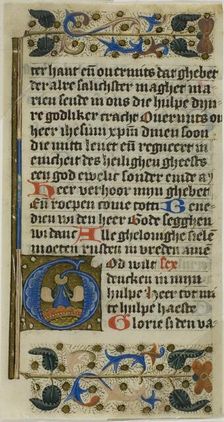 ter hant en̄ ouermits dat ghebet
der alre salichster maghet ma
rien sende in ons die hulpe dijn
re godliker cracht Ouermits on
heer ihesum xpm̄ dinen soen
die mitti leuet en̄ regneert in
enicheit des heilighen gheests
een god ewelic sonder einde a
Heer verhoor mijn ghebet
En̄ roepen come totti Be
nedien wi den heer Gode segghen
wi danc Alle gheloughe siele
moeten rusten in vreden ame
God wilt sex
dencken in mijn
hulpe Heer tot mi
te hulpe haeste
Glorie si den va